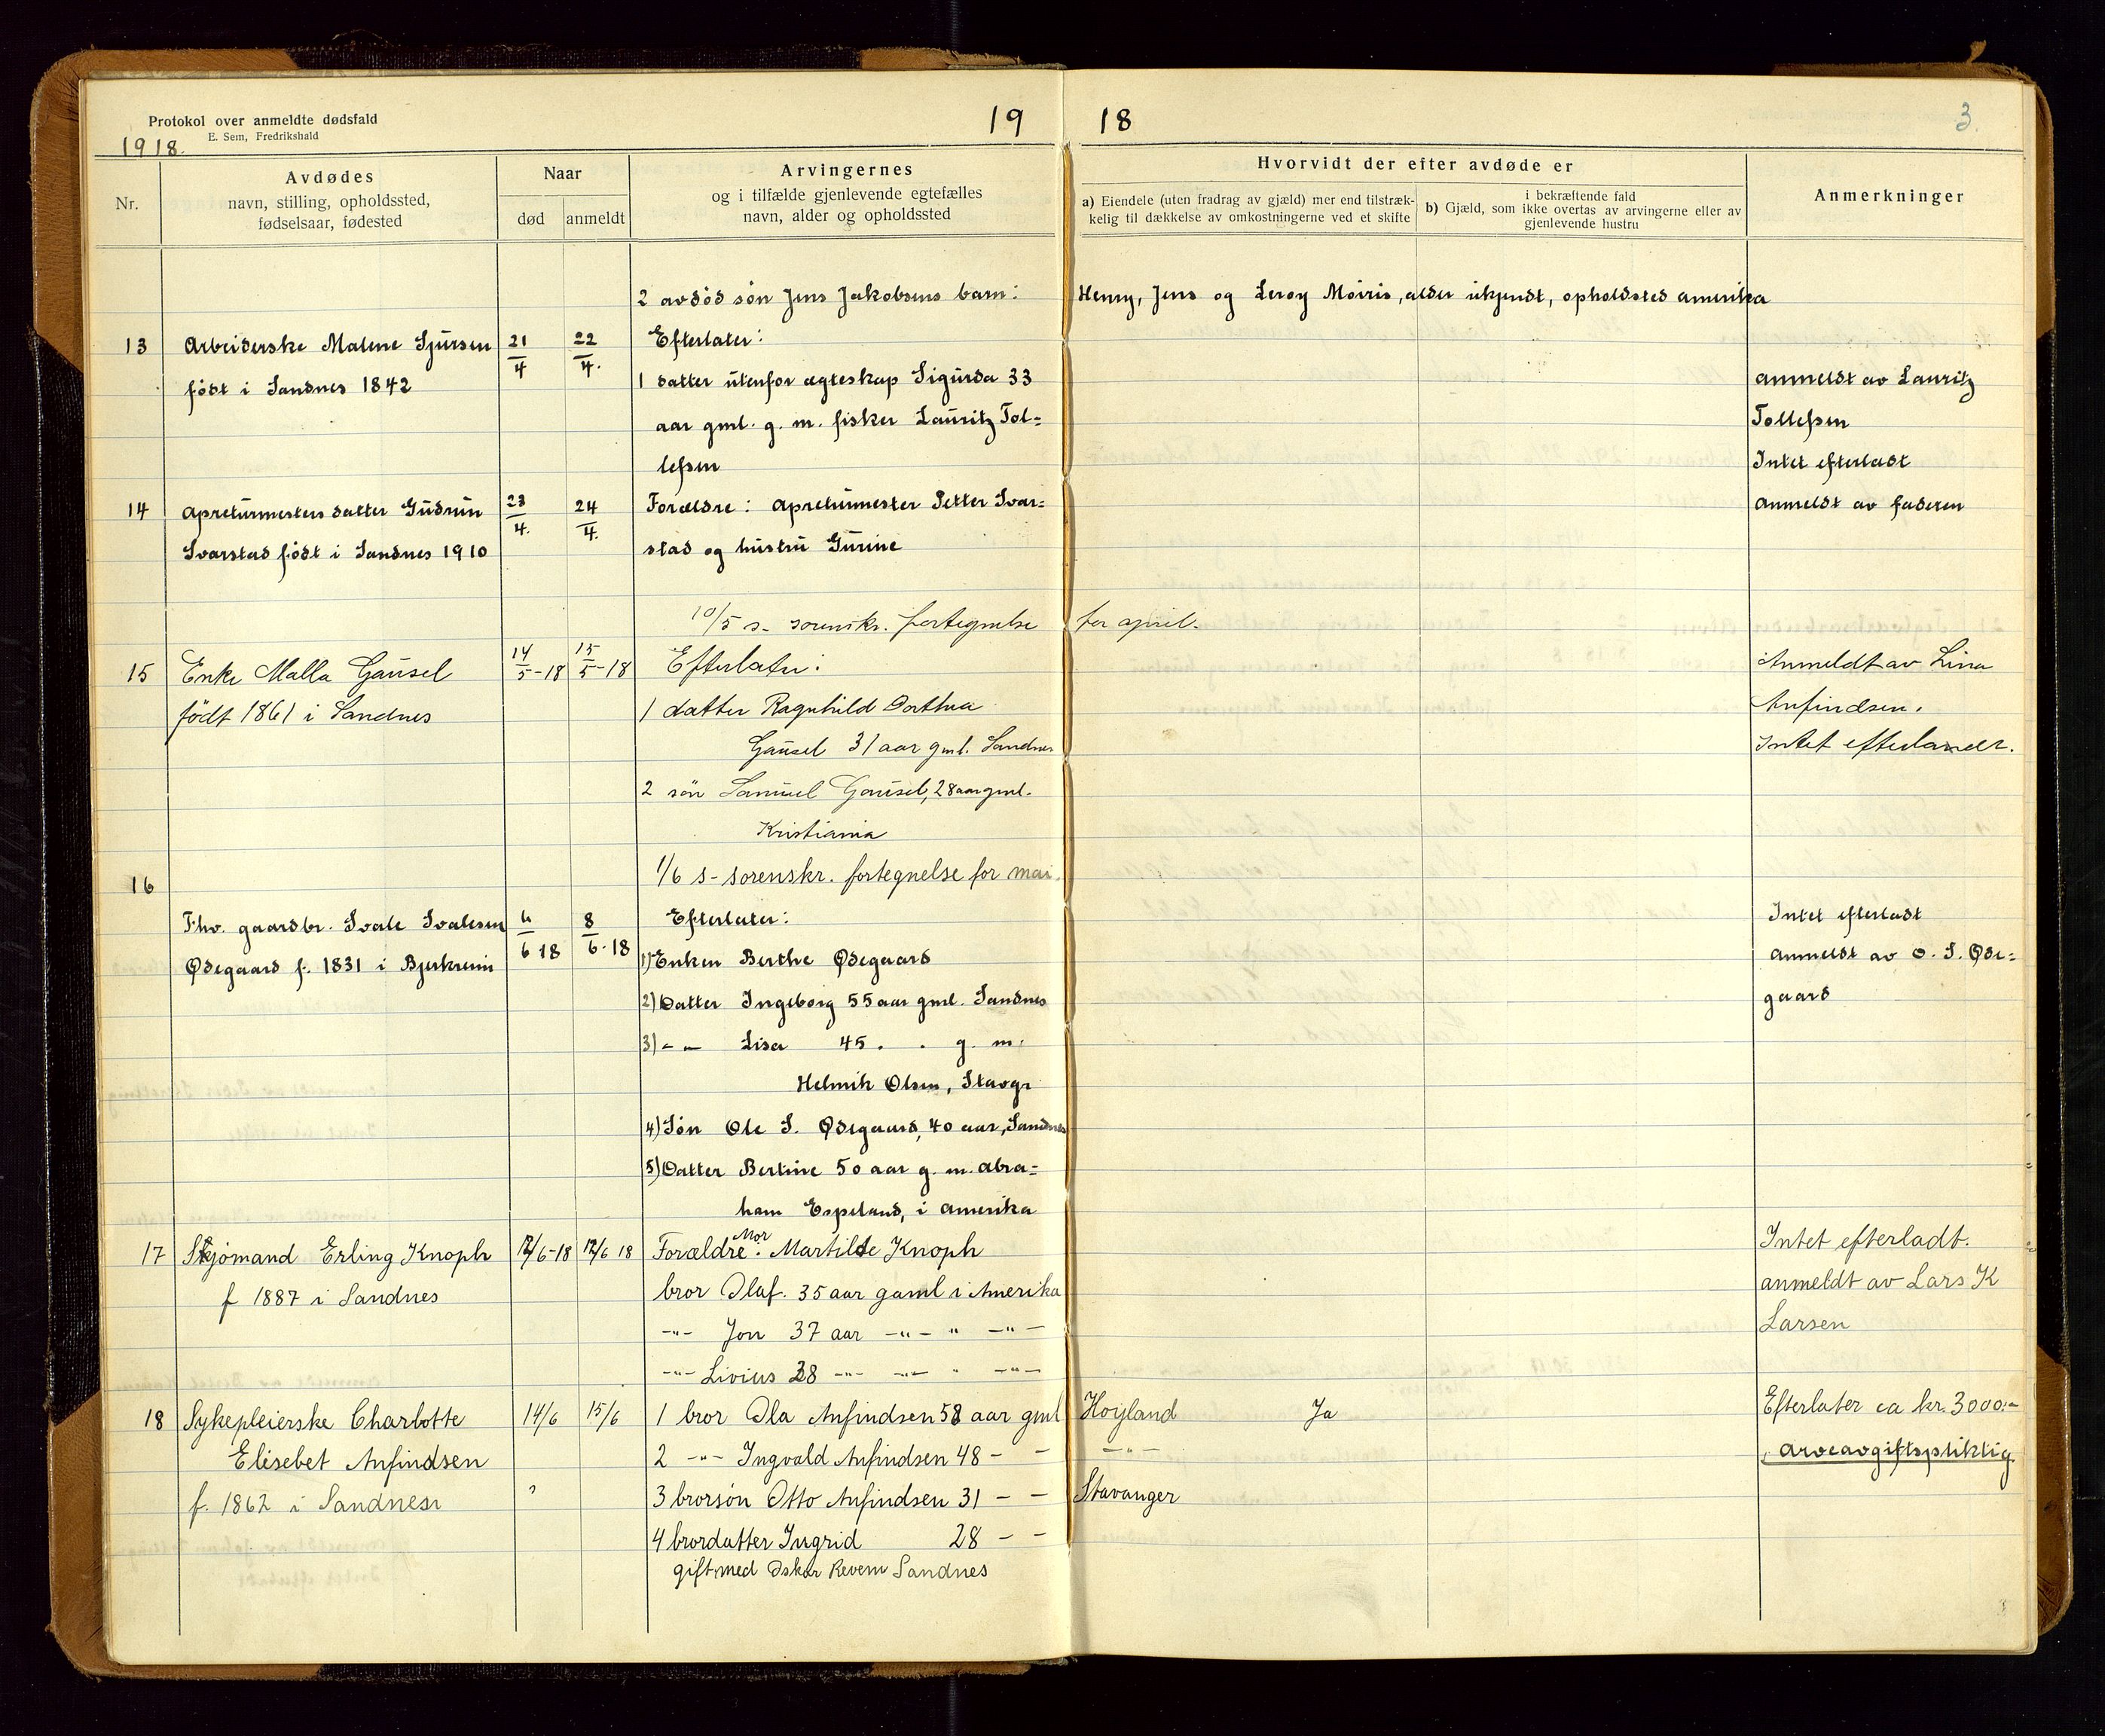 Protokol over anmeldte dødsfald
E. Sem, Fredrikshald
1918.
19 18
3.
Nr.
Avdødes
navn, stilling, opholdssted,
fødselsaar, fødested
Naar
død
anmeldt
Arvingernes
og i tilfælde gjenlevende egtefælles
navn, alder og opholdssted
Hvorvidt der efter avdøde er
a) Eiendele (uten fradrag av gjæld) mer end tilstræk-
kelig til dækkelse av omkostningerne ved et skifte
i bekræftende fald
b) Gjæld, som ikke overtas av arvingerne eller av
gjenlevende hustru
Anmerkninger
2 avdød søn Jens Jakobsens barn: Henry, Jens og Leroy Moiris, alder ukjendt, opholdsted amerika
13 Arbeiderske Malene Sjursen 21/4 22/4. Efterlater:
født i Sandnes 1842 1 datter utenfor ægteskap Sigurda 33 anmeldt av Lauritz
aar gml. g. m. fisker Lauritz Tol= Tollefsen
lefsen Intet efterladt
14 Apreturmesters datter Gudrun 23/4. 24/4. Forældre: Apreturmester Petter Svar= Anmeldt av faderen
Svarstad født i Sandnes 1910 stad og hustru Gurine
10/5 s- sorenskr. fortegnelse for april.
15 Enke Malla Gausel 14/5-18 15/5-18 Efterlater: Anmeldt av Lina
født 1861 i Sandnes 1 datter Ragnhild Dorthea Anfindsen.
Gausel 31 aar gml. Sandnes Intet efterlandt.
2 søn Samuel Gausel, 28 aar gml.
Kristiania
16 1/6 s- sorenskr. fortegnelse for mai.
Fhv. gaardbr. Svale Svalesen 6/6 18 8/6-18 Efterlater: Intet efterladt
Ødegaard f. 1831 i Bjerkreim 1) Enken Berthe Ødegaard anmeldt av O. S. Øde=
2) Datter Ingeborg 55 aar gml. Sandnes gaard
3) -"- Lisa 45 . . g. m.
Helmik Olsen, Stavgr
4) Søn Ole S. Ødegaard, 40 aar, Sandnes
5) Datter Bertine 50 aar g. m. Abra=
ham Espeland, i amerika
17 Skjømand Erling Knoph 12/6-18 12/6 18 Forældre: Mor Martilde Knoph Intet efterladt.
f 1887 i Sandnes bror Olaf. 35 aar gaml i Amerika anmeldt av Lars K
-"- Jon 37 aar -"- " -"- Larsen
-"- Livius 28 -"- -"- " -"-
18 Sykepleierske Charlotte 14/6 15/6 1 bror Ola Anfindsen 58 aar gml Høyland Ja Efterlater ca kr. 3000.-
Elisebet Anfindsen 2 -"- Ingvald Anfindsen 48 - - -"- arveavgiftspliktig
f. 1862 i Sandnes 3 brorsøn Otto Anfindsen 31 - - Stavanger
4 brordatter Ingrid 28 - -
gift med Oskar Revem Sandnes